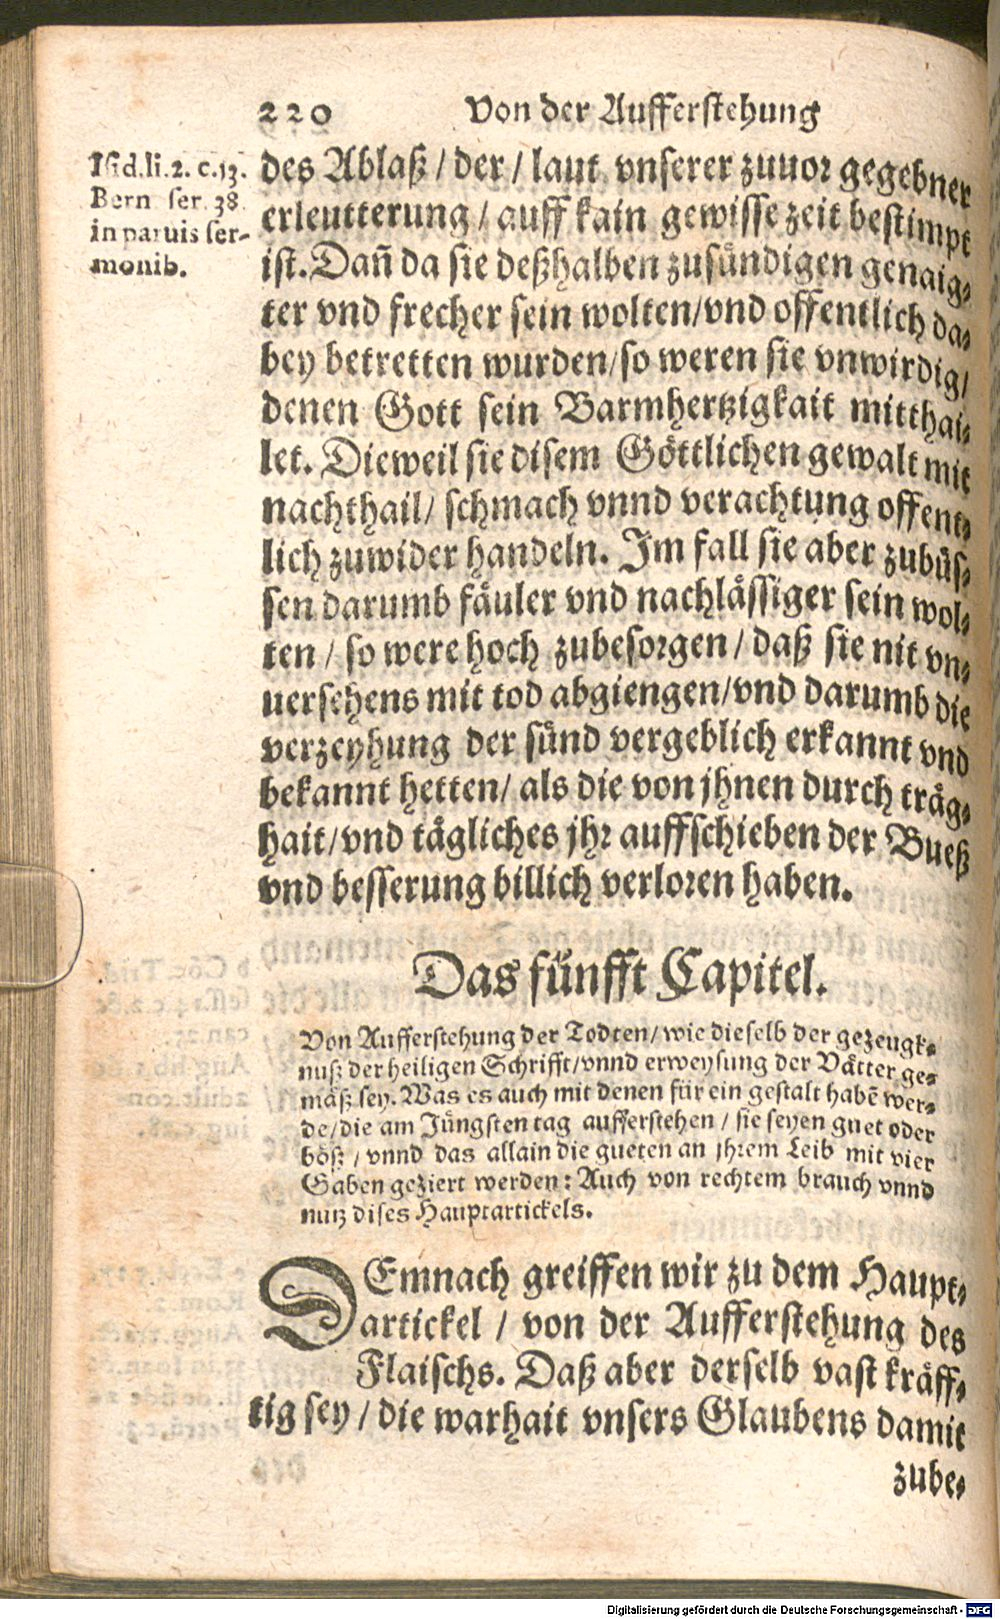 220 Von der Aufferstehung
Isid.li.2.c.13.
Bern ser.38
in paruis ser-
monib.
des Ablaß / der / laut vnserer zuuor gegebner
erleutterung / auff kain gewisse zeit bestimpt
ist. Dañ da sie deßhalben zusündigen genaig-
ter vnd frecher sein wolten/vnd offentlich da-
bey betretten wurden/so weren sie vnwirdig/
denen Gott sein Barmhertzigkait mitthai-
let. Dieweil sie disem Göttlichen gewalt mit
nachthail/ schmach vnnd verachtung offent-
lich zuwider handeln. Im fall sie aber zubüs-
sen darumb fäuler vnd nachlässiger sein wol-
ten / so were hoch zubesorgen / daß sie nit vn-
uersehens mit tod abgiengen/vnd darumb die
verzeyhung der sünd vergeblich erkannt vnd
bekannt hetten/ als die von jhnen durch träg-
hait/vnd tägliches jhr auffschieben der Bueß
vnd besserung billich verloren haben.
Das fünfft Capitel.
Von Aufferstehung der Todten/wie dieselb der gezeugk-
nuß der heiligen Schrifft/vnnd erweysung der Vätter ge-
mäß sey. Was es auch mit denen für ein gestalt habẽ wer-
de/die am Jüngsten tag aufferstehen / sie seyen guet oder
böß / vnnd das allain die gueten an jhrem Leib mit vier
Gaben geziert werden: Auch von rechtem brauch vnnd
nutz dises Hauptartickels.
DEmnach greiffen wir zu dem Haupt-
artickel / von der Aufferstehung des
Flaischs. Daß aber derselb vast kräff-
tig sey / die warhait vnsers Glaubens damit
zube-
Digitalisierung gefördert durch die Deutsche Forschungsgemeinschaft - DFG